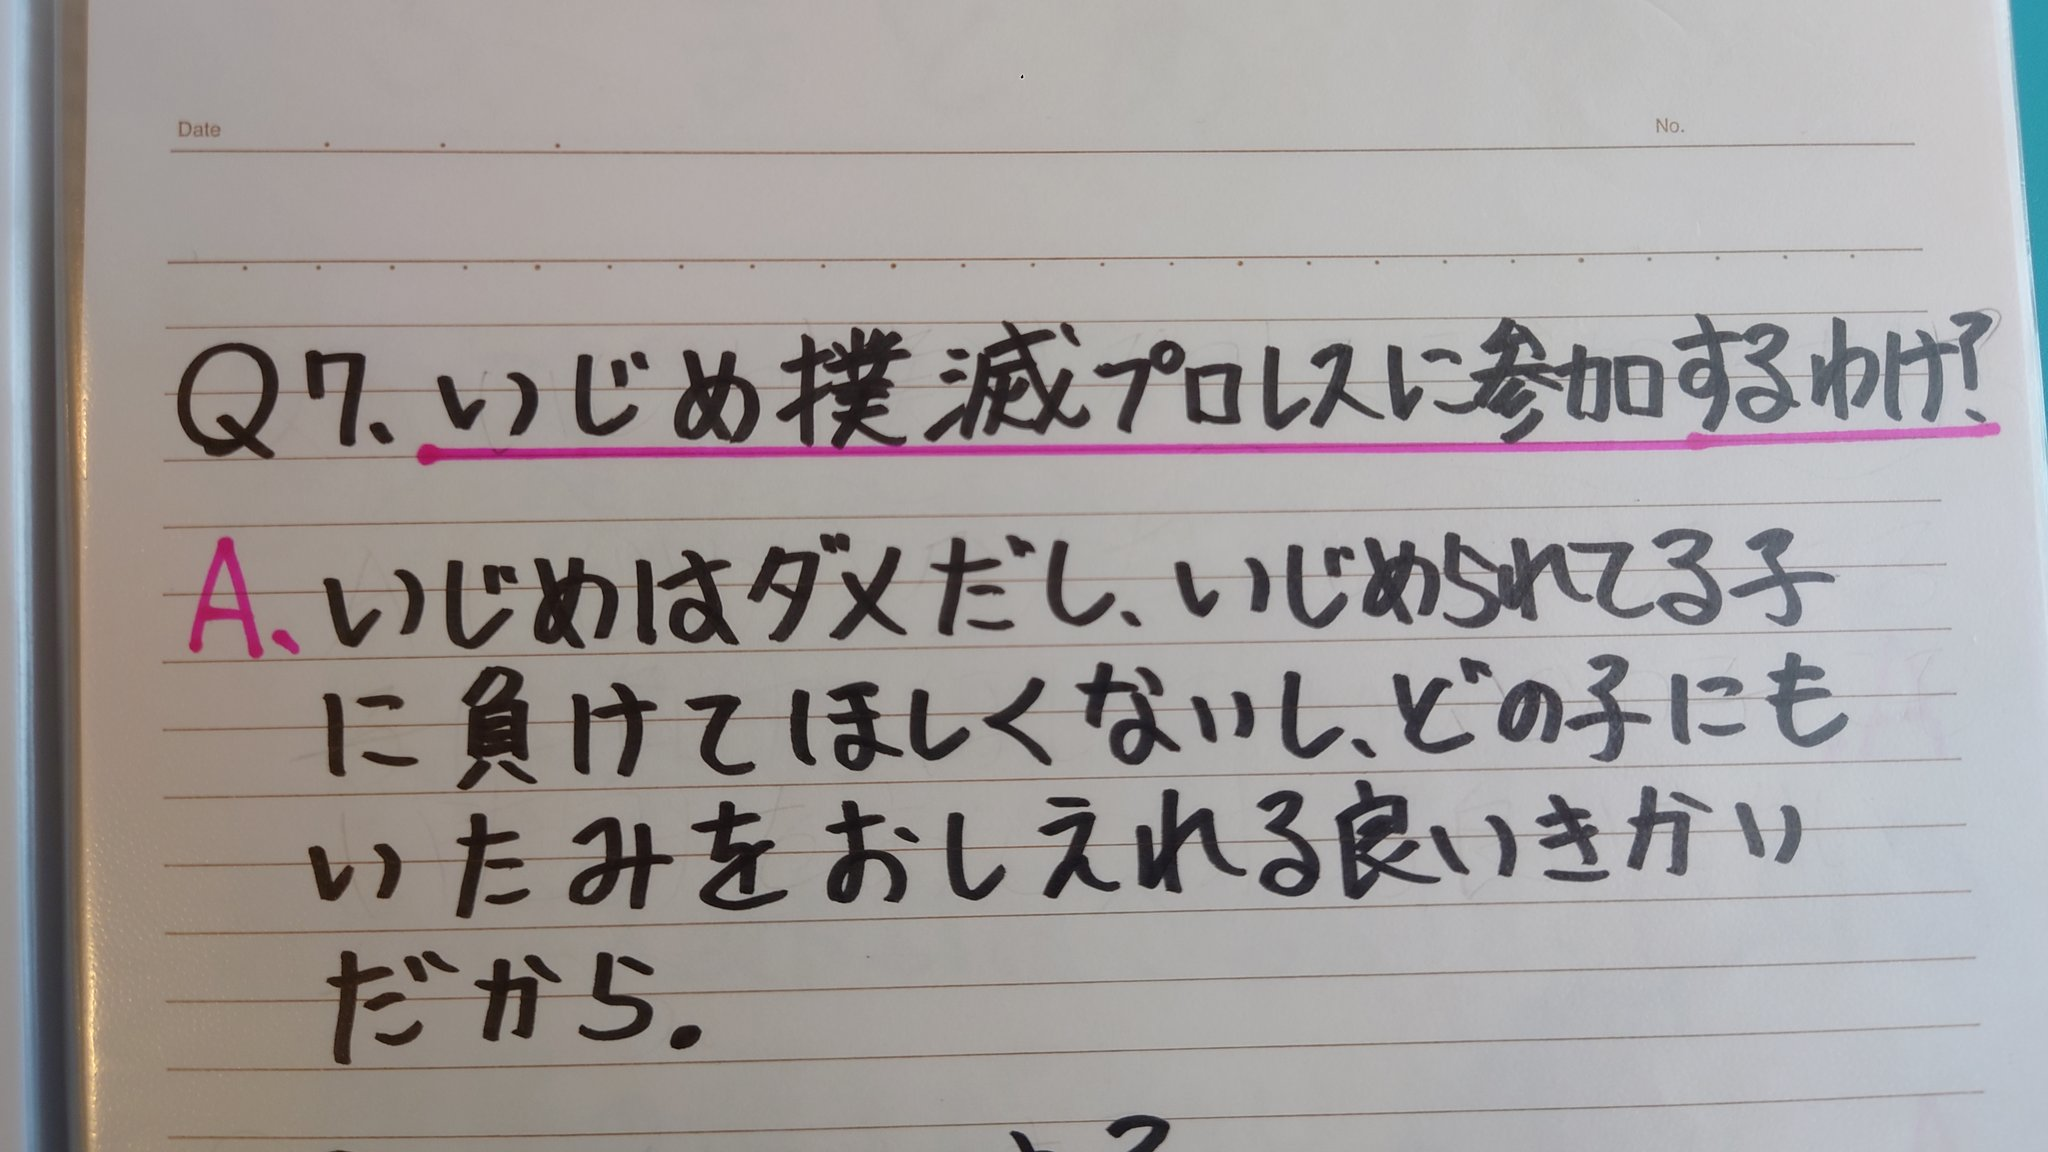 Date
No.
Q7.いじめ撲滅プロレスに参加するわけ?
A.いじめはダメだし、いじめられてる子
に負けてほしくないし、どの子にも
いたみをおしえれる良いきかい
だから.